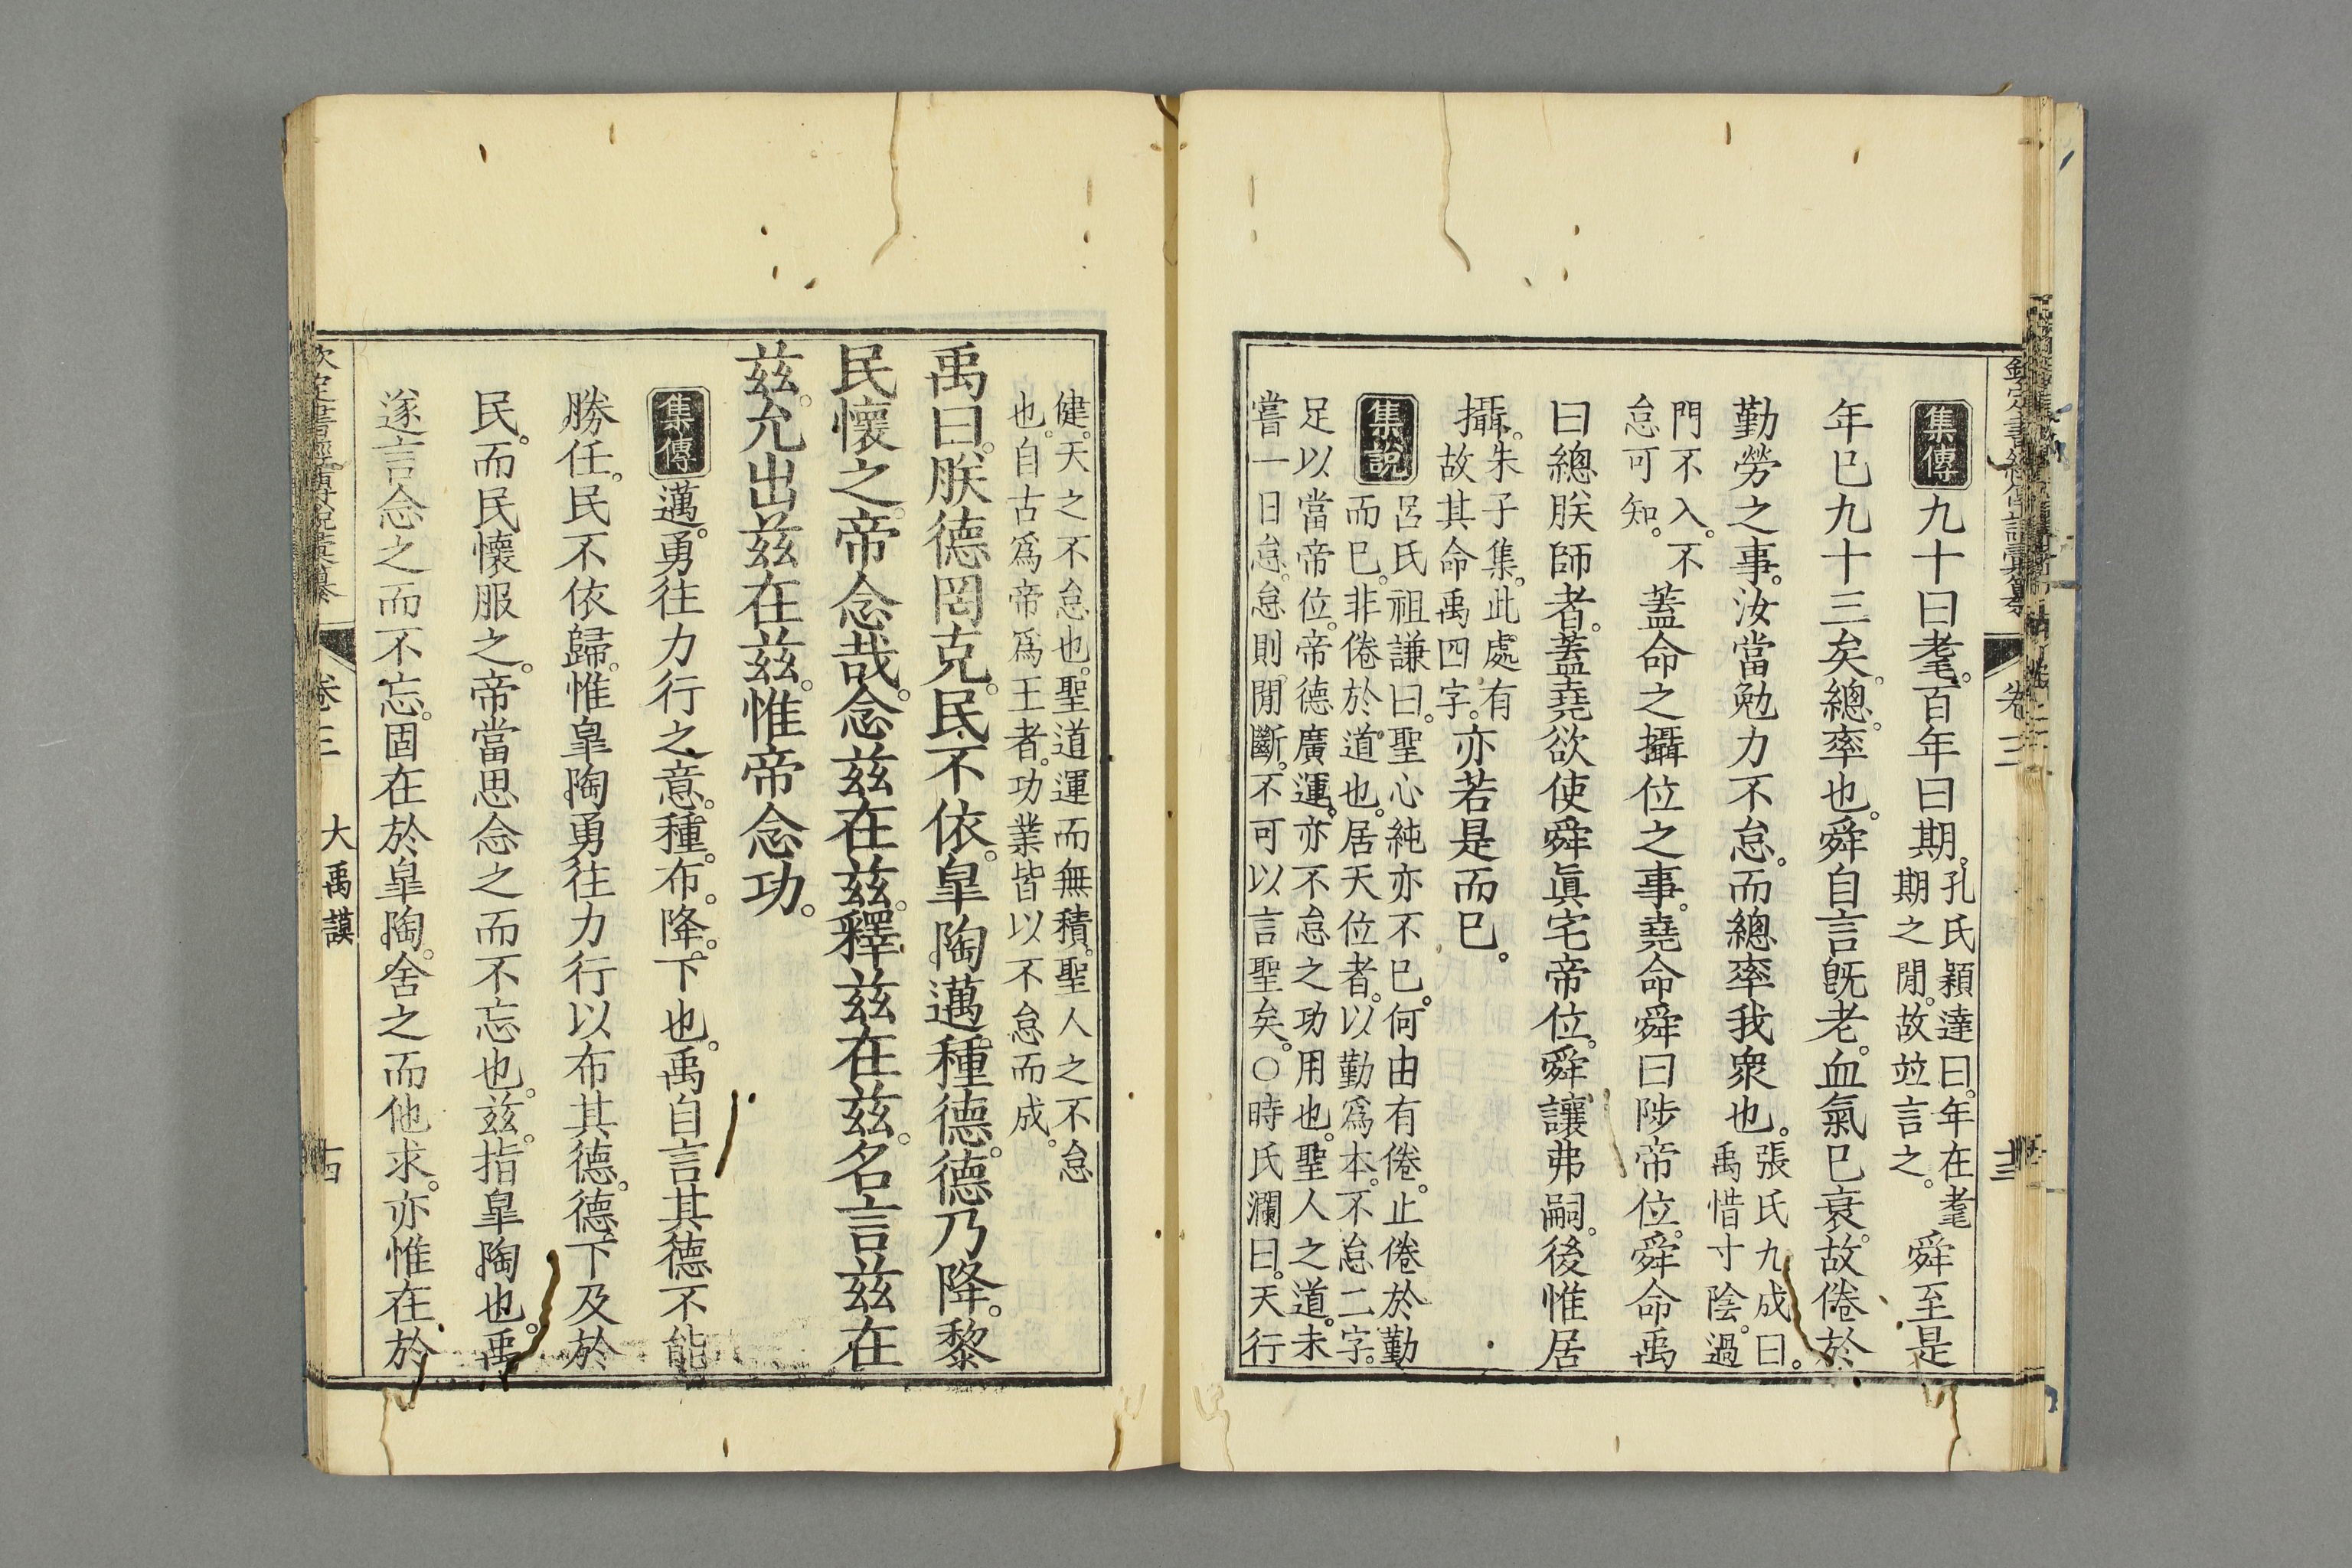 集傳 九十曰耄。百年曰期。孔氏穎達曰。年在耄
期之閒。故竝言之。舜至是
年已九十三矣。總。率也。舜自言既老。血氣已衰。故倦於
勤勞之事。汝當勉力不怠。而總率我衆也。張氏九成曰。
禹惜寸陰。過
門不入。不
怠可知。蓋命之攝位之事。堯命舜曰陟帝位。舜命禹
曰總朕師者。蓋堯欲使舜眞宅帝位。舜讓弗嗣。後惟居
攝。朱子集。此處有
故其命禹四字。亦若是而已。
集說 呂氏祖謙曰。聖心純亦不已。何由有倦。止倦於勤
而已。非倦於道也。居天位者。以勤爲本。不怠二字。
足以當帝位。帝德廣運。亦不怠之功用也。聖人之道。未
嘗一日怠。怠則閒斷。不可以言聖矣。○時氏瀾曰。天行
健。天之不怠也。聖道運而無積。聖人之不怠
也。自古爲帝爲王者。功業皆以不怠而成。
禹曰。朕德罔克。民不依。皐陶邁種德。德乃降。黎
民懷之。帝念哉。念茲在茲。釋茲在茲。名言茲在
茲。允出茲在茲。惟帝念功。
集傳 邁。勇往力行之意。種。布。降。下也。禹自言其德不能
勝任。民不依歸。惟皐陶勇往力行以布其德。德下及於
民。而民懷服之。帝當思念之而不忘也。茲。指皐陶也。禹
遂言念之而不忘。固在於皐陶。舍之而他求。亦惟在於
欽定書經傳說彙纂 卷三 大禹謨 十四